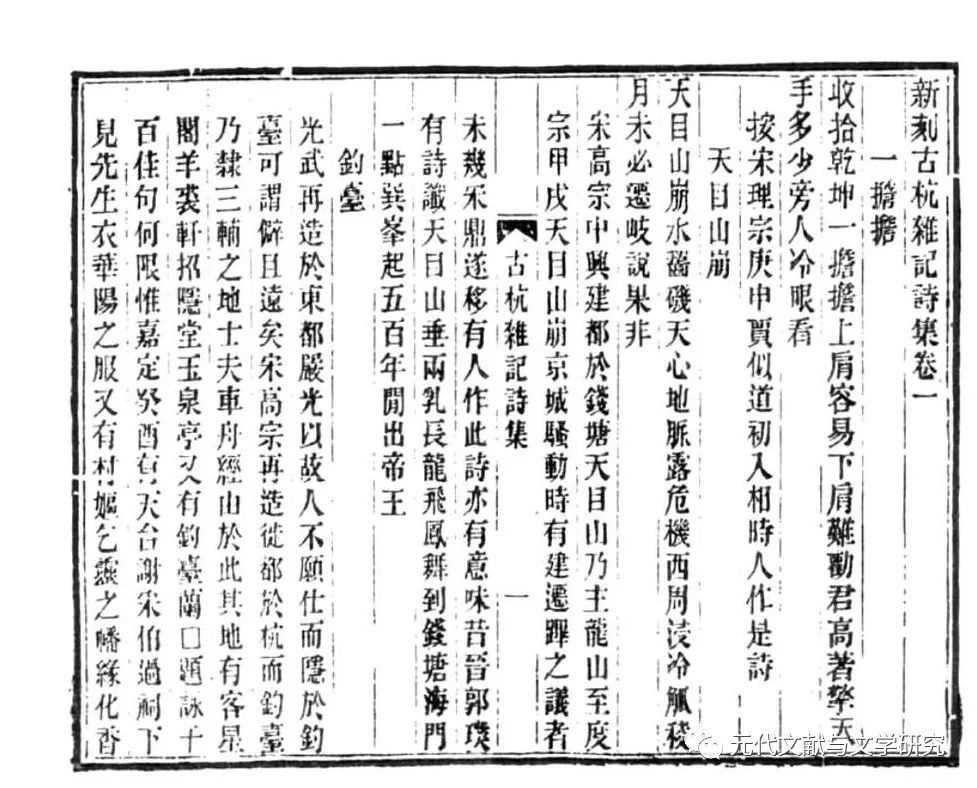 新刻古杭雜記詩集卷一
一擔擔
收拾乾坤一擔擔上肩容易下肩難勸君高著擎天
手多少旁人冷眼看
按宋理宗庚申賈似道初入相時人作是詩
天目山崩
天目山崩水齧磯天心地脈露危機西周浸冷觚稜
月未必遷岐說果非
宋高宗中興建都於錢塘天目山乃主龍山至度
宗甲戌天目山崩京城騷動時有建遷蹕之議者
古杭雜記詩集 一
未幾宋鼎遂移有人作此詩亦有意味昔晉郭璞
有詩讖天目山垂兩乳長龍飛鳳舞到錢塘海門
一點巽峯起五百年閒出帝王
釣臺
光武再造於東都嚴光以故人不願仕而隱於釣
臺可謂僻且遠矣宋高宗再造徙都於杭而釣臺
乃隸三輔之地士夫車舟經由於此其地有客星
閣羊裘軒招隱堂玉泉亭又有釣臺蘭口題詠千
百佳句何限惟嘉定癸酉有天台謝宋伯過祠下
見先生衣華陽之服又有村嫗乞靈之幡緣化香
元代文献与文学研究